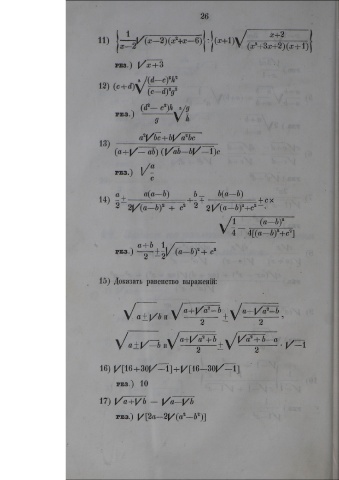 26
11) {1/(x—2) √(x—2)(x²+x—6)}:{(x+1)√(x+2)/((x²+3x+2)(x+1))}
рез.) √x+3
12) (c+d) √(d—c)²h²/(c—d)²g²
рез.) (d²—c²)h/g √g/h
13) (a²√bc+b√a²bc)/((a+√—ab)(√ab—b√—1)c)
рез.) √a/c
14) a/2 ± a(a—b)/(2√(a—b)²+c²) + b/2 ∓ b(a—b)/(2√(a—b)²+c²) ± c×
√1/4 — (a—b)²/(4[(a—b)²+c²])
рез.) (a+b)/2 ± 1/2 √(a—b)²+c²
15) Доказать равенство выраженій:
√a±√b и √(a+√a²—b)/2 ± √(a—√a²—b)/2 ,
√a±√—b и √(a+√a²+b)/2 ± √(√a²+b—a)/2 · √—1
16) √[16+30√—1]+√[16—30√—1]
рез.) 10
17) √a+√b — √a—√b
рез.) √[2a—2√(a²—b²)]